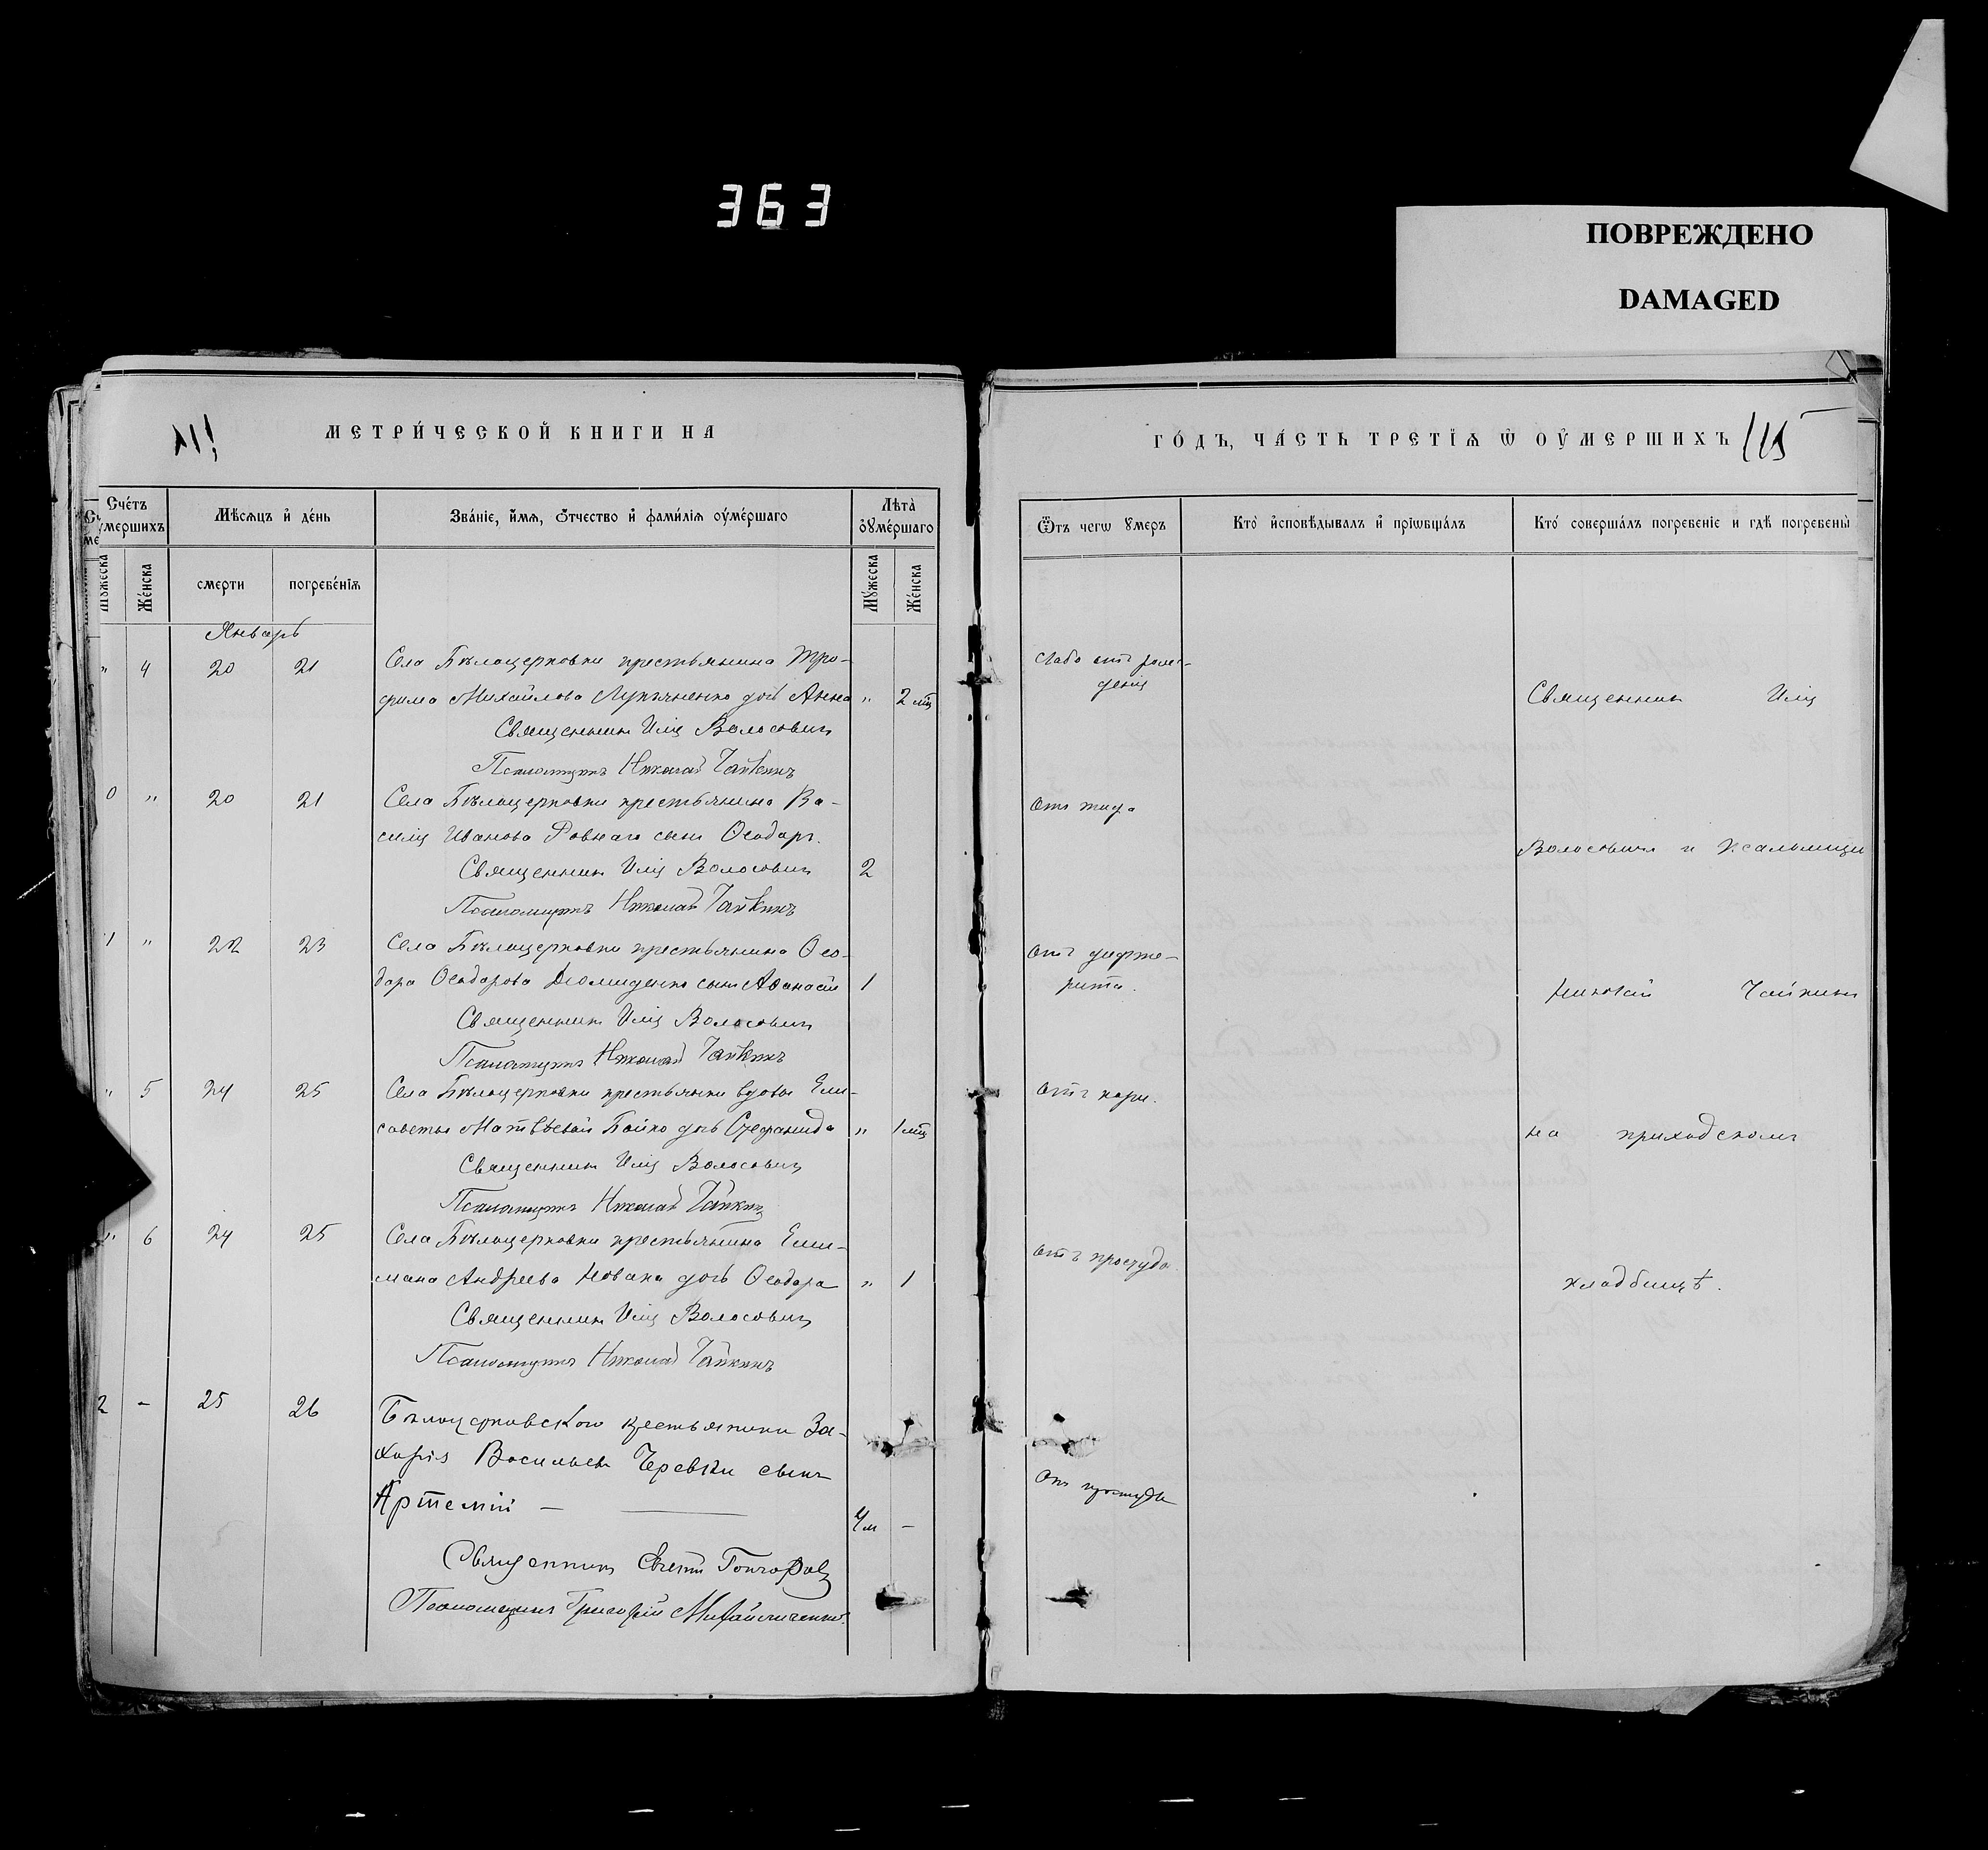 363
ПОВРЕЖДЕНО
DAMAGED
МЕТРИ́ЧЕСКОЙ КНИГИ НА
ГО́ДЪ, ЧА́СТЬ ТРЕТІѦ Ѿ ОУ҆МЕРШИХЪ
115
Сче́тъ
умершихъ
Мѣсѧцъ и҆ де́нь
Зва́нїе, и҆́мѧ, ѻ҆́тчество и҆ фами́лїѧ оу҆ме́ршаго
Лѣта̀
оу҆ме́ршаго
Ѿ чегѡ ᲂумеръ
Кто̀ и҆сповѣ́дывалъ и҆ прїѡбща́лъ
Кто̀ соверша́лъ погребе́нїе и гдѣ̀ погребены̀
Мꙋ́жеска
Же́нска
смерти
погребе́нїѧ
Мꙋ́жеска
Же́нска
Январь
" 4 20 21 Села Бѣлоцерковки крестьянина Тро-
фима Михайлова Лукьяненко дочь Анна " 2 мц
Священникъ Илія Волосовичъ
Псаломщикъ Николай Чайкинъ
слабо отъ рож-
денія
Священник Илія
0 " 20 21 Села Бѣлоцерковки крестьянина Ва-
силія Иванова Ровнаго сынъ Ѳеодоръ.
Священникъ Илія Волосовичъ 2
Псаломщикъ Николай Чайкинъ
Волосовичъ и псаломщикъ
1 " 22 23 Села Бѣлоцерковки крестьянина Ѳео-
дора Ѳеодорова Діомиденко сынъ Аѳанасій 1
Священникъ Илія Волосовичъ
Псаломщикъ Николай Чайкинъ
отъ дифте-
рита.
Николай Чайкинъ
" 5 24 25 Села Бѣлоцерковки крестьянки вдовы Ели-
саветы Матвѣевой Бойко дочь Стефанида " 1 мц
Священникъ Илія Волосовичъ
Псаломщикъ Николай Чайкинъ
отъ кори.
на приходскомъ
" 6 24 25 Села Бѣлоцерковки крестьянина Ели-
мана Андреева Новака дочь Ѳеодора " 1
Священникъ Илія Волосовичъ
Псаломщикъ Николай Чайкинъ
отъ простуды.
кладбищѣ.
2 - 25 26 Бѣлоцерковского крестьянина За-
харія Васильева Черевки сынъ
Артемій — 4 м -
Священникъ Гончаровъ
Псаломщикъ Григорій Михайличенко.
отъ простуды